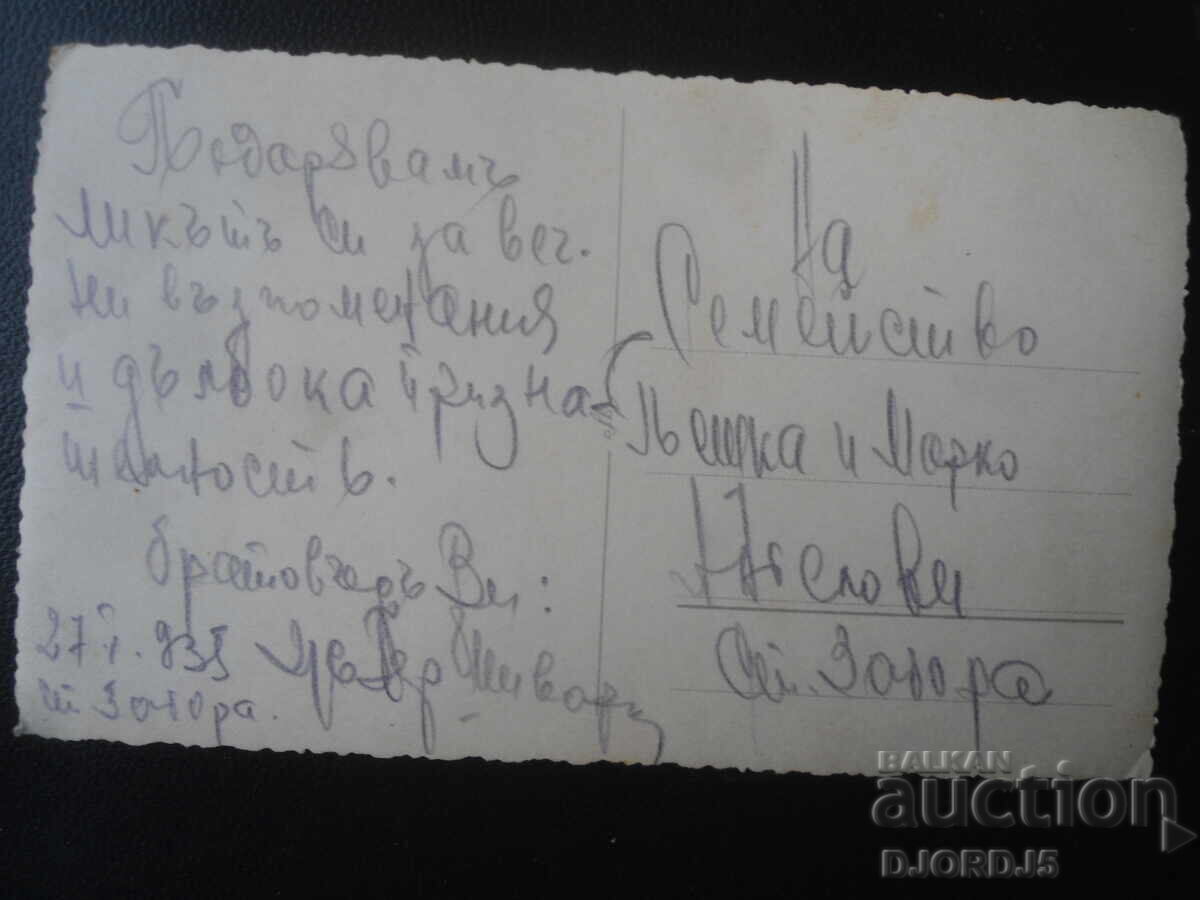 Подарявамъ
ликътъ си за веч.
ни възпоменания
и дълбока призна-
телность.
братовчедъ Ви:
27 I. 935
ст Загора.
На
Семейство
Пешка и Марко
Ст. Загора
BALKAN
auction
DJORDJ5